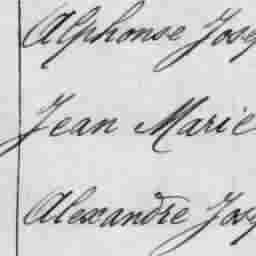 Alphonse Jos
Jean Marie
Alexandre Jos